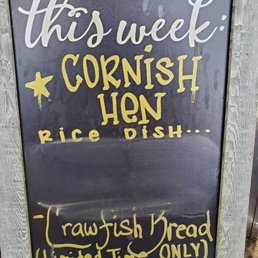 this week:
CORNISH
Hen
Rice Dish...
-Crawfish Bread
(Limited Time ONLY)